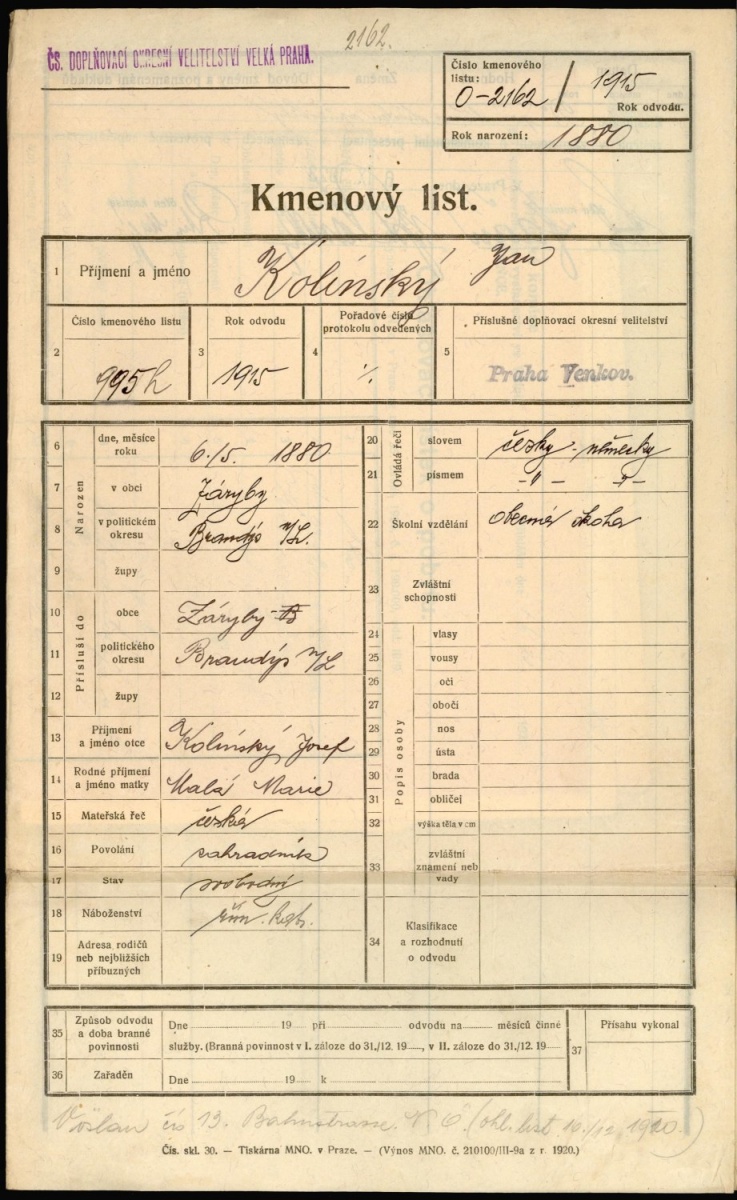 2162.
ČS. DOPLŇOVACÍ OKRESNÍ VELITELSTVÍ VELKÁ PRAHA.
Číslo kmenového listu: 0-2162 / 1915 Rok odvodu.
Rok narození: 1880
Kmenový list.
1 Příjmení a jméno Kolínský Jan
2 Číslo kmenového listu 995h
3 Rok odvodu 1915
4 Pořadové číslo protokolu odvedených ./.
5 Příslušné doplňovací okresní velitelství Praha Venkov.
Narozen
6 dne, měsíce roku 6./5. 1880
7 v obci Záryby
8 v politickém okresu Brandýs n/L.
9 župy
Přísluší do
10 obce Záryby
11 politického okresu Brandýs n/L
12 župy
13 Příjmení a jméno otce Kolínský Josef
14 Rodné příjmení a jméno matky Malá Marie
15 Mateřská řeč česká
16 Povolání zahradník
17 Stav svobodný
18 Náboženství řím. kat.
19 Adresa rodičů neb nejbližších příbuzných
Ovládá řeči
20 slovem česky - německy
21 písmem -"- -"-
22 Školní vzdělání obecná škola
23 Zvláštní schopnosti
Popis osoby
24 vlasy
25 vousy
26 oči
27 obočí
28 nos
29 ústa
30 brada
31 obličej
32 výška těla v cm
33 zvláštní znamení neb vady
34 Klasifikace a rozhodnutí o odvodu
35 Způsob odvodu a doba branné povinnosti
Dne 19 při odvodu na měsíců činné
služby. (Branná povinnost v I. záloze do 31./12. 19 , v II. záloze do 31./12. 19
36 Zařaděn Dne 19 k
37 Přísahu vykonal
Vöslau čís 13. Bahnstrasse. N. Ö. (ohl. list 16./12. 1920.)
Čís. skl. 30. — Tiskárna MNO. v Praze. — (Výnos MNO. č. 210100/III-9a z r. 1920.)